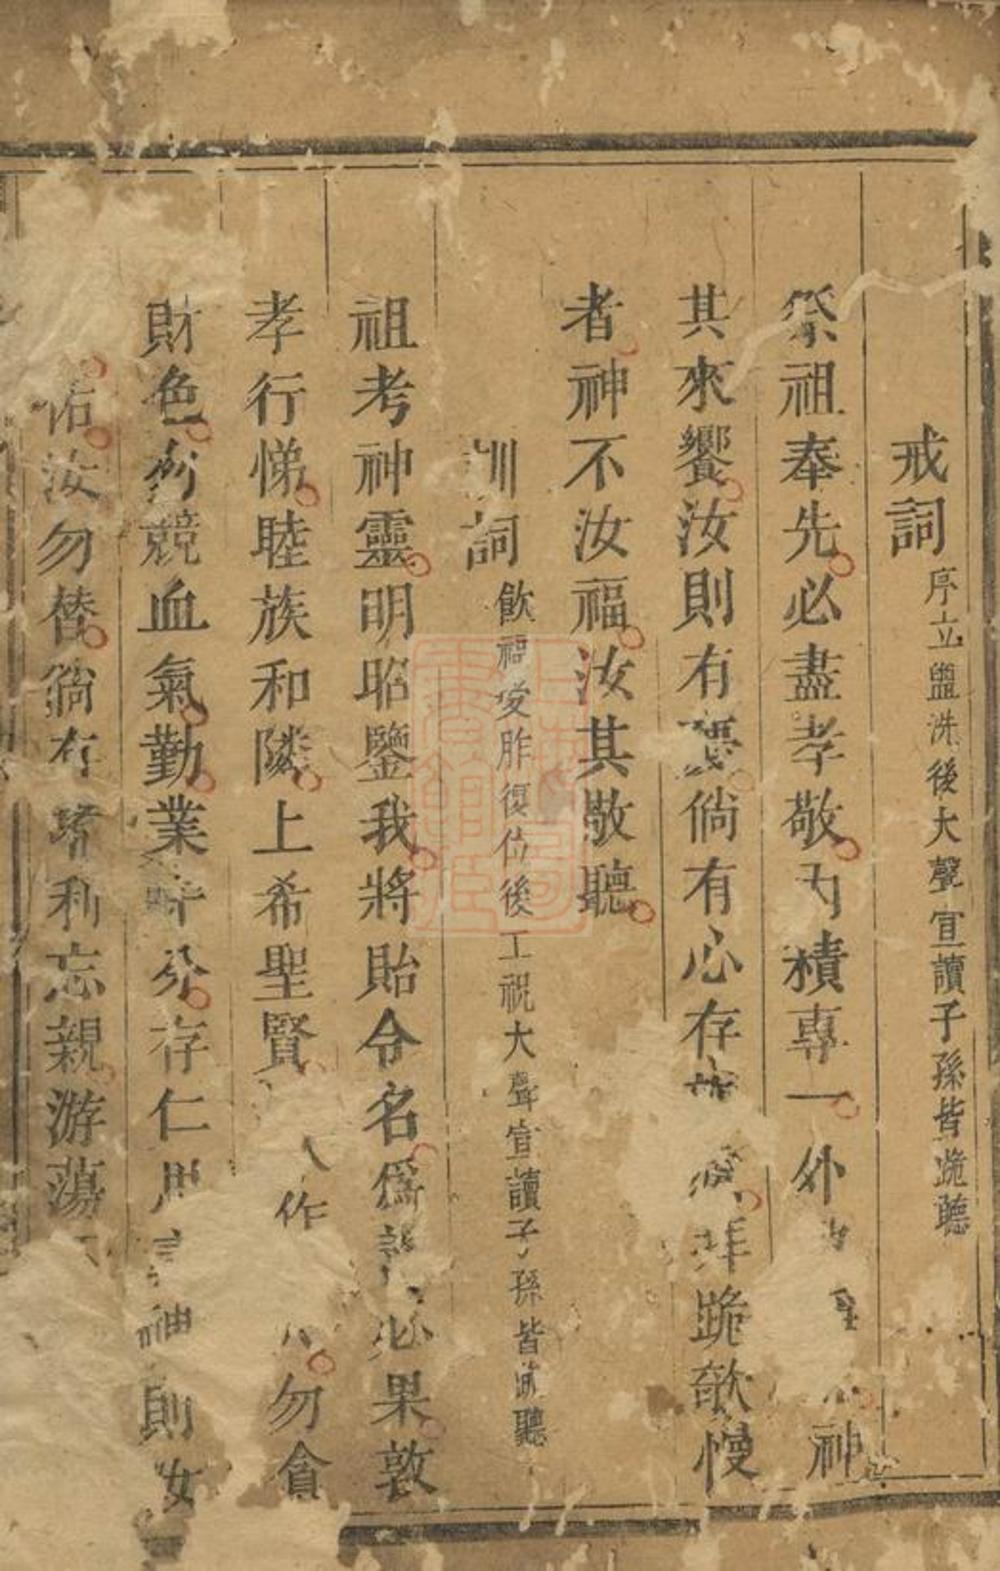 戒詞 序立盥洗後大聲宣讀子孫皆跪聽
祭祖奉先必盡孝敬內積專一外神
其來饗汝則有慶倘有心存拜跪欹慢
者神不汝福汝其敬聽
訓詞 飲福受胙復位後工祝大聲宣讀子孫皆跪聽
祖考神靈明昭鑒我將貽令名為善必果敦
孝行悌睦族和隣上希聖賢作勿貪
財色勿競血氣勤業安分存仁用神則汝
佑汝勿替倘有嗜利忘親游蕩